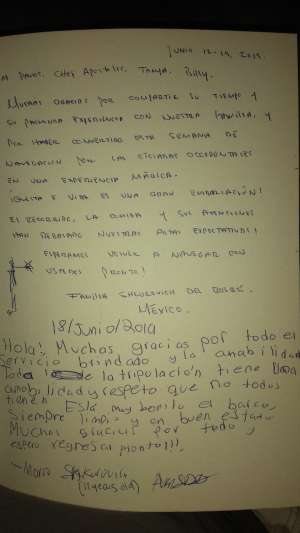 Junio 12-19, 2019.
Muchas gracias por compartir su tiempo y
su profunda experiencia con nuestra familia, y
por haber convertido esta semana de
navegación por las Cícladas Occidentales
en una experiencia mágica.
¡ & Vita es una gran embarcación!
El recorrido, la comida y sus atenciones
han rebasado nuestras altas expectativas!
Esperamos volver a navegar con
ustedes pronto!
Familia del
México.
18/Junio/2019
Hola! Muchas gracias por todo el
servicio brindado y la amabilidad
toda la tripulación tiene una
amabilidad y respeto que no todos
tienen. Está muy bonito el barco,
siempre limpio y en buen estado
Muchas gracias por todo y
espero regresar pronto!!!
(11 years old)